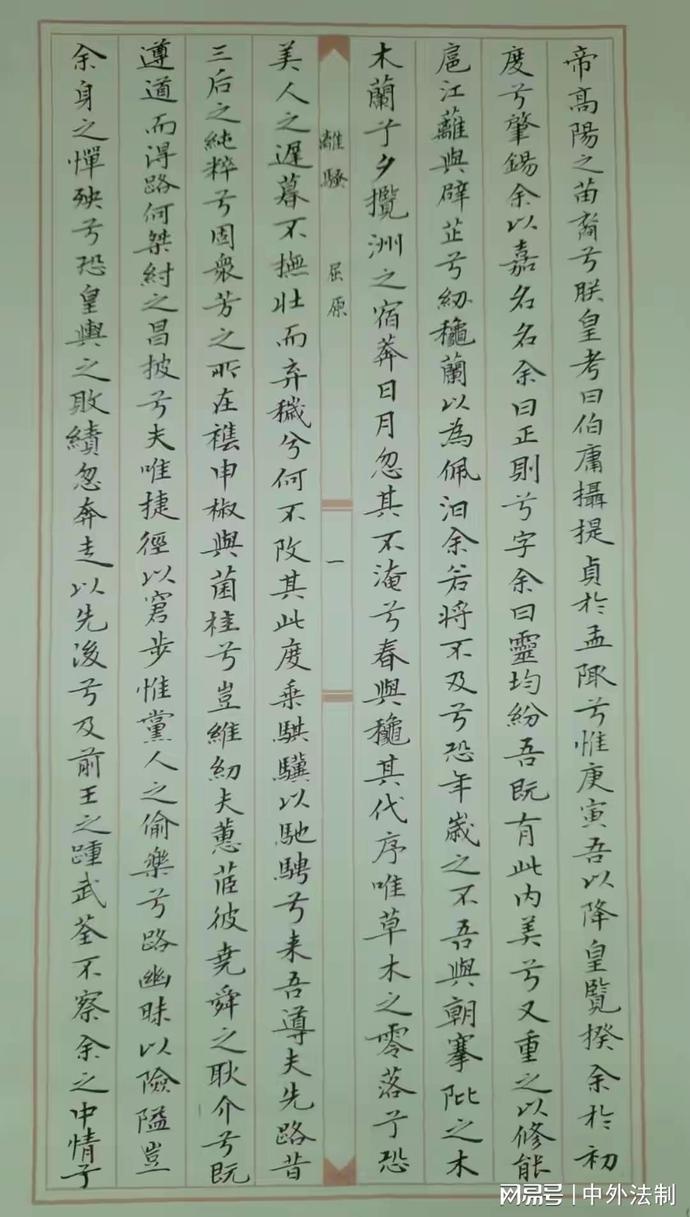 帝高陽之苗裔兮朕皇考曰伯庸攝提貞於孟陬兮惟庚寅吾以降皇覽揆余於初
度兮肇錫余以嘉名名余曰正則兮字余曰靈均紛吾既有此内美兮又重之以修能
扈江蘺與辟芷兮紉穐蘭以為佩汩余若將不及兮恐年歲之不吾與朝搴阰之木
木蘭兮夕攬洲之宿莽日月忽其不淹兮春與穐其代序唯草木之零落兮恐
離騷 屈原
一
美人之遲暮不撫壯而弃穢兮何不改其此度乘騏驥以馳騁兮来吾導夫先路昔
三后之純粹兮固衆芳之所在襍申椒與菌桂兮豈維紉夫蕙茝彼堯舜之耿介兮既
遵道而得路何桀紂之昌披兮夫唯捷徑以窘步惟黨人之偷樂兮路幽昧以險隘豈
余身之憚殃兮恐皇輿之敗績忽奔走以先後兮及前王之踵武荃不察余之中情兮
网易号 | 中外法制